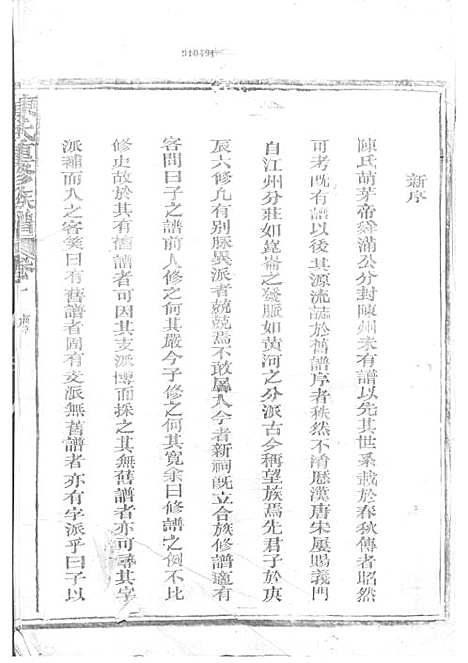 310491
新序
陳氏萌芽帝舜滿公分封陳州未有譜以先其世系載於春秋傳者昭然
可考既有譜以後其源流誌於舊譜序者秩然不淆歷漢唐宋屢賜義門
自江州分莊如崑崙之發脈如黃河之分派古今稱望族焉先君子於庚
辰六修凡有别脉異派者兢兢焉不敢屬人今者新祠既立合族修譜適有
客問曰子之譜前人修之何其嚴今子修之何其寬余曰修譜之例不比
修史故於其有舊譜者可因其支派博而採之其無舊譜者亦可尋其字
派補而入之客笑曰有舊譜者固有支派無舊譜者亦有字派乎曰子以
陳氏重修族譜